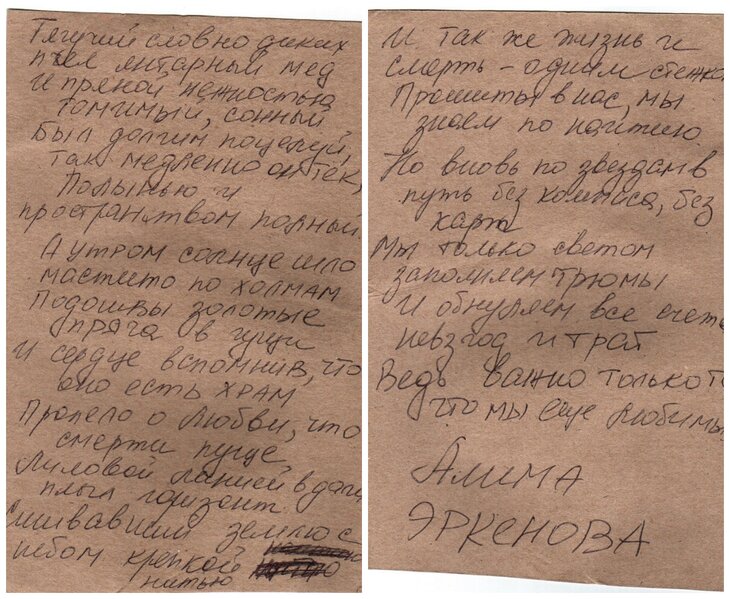 Тягучий словно диких
пчел янтарный мед
И пряной нежностью
томимый, сонный
Был долгим поцелуй,
так медленно он тек,
Полынью и
пространством полный.
А утром солнце шло
мастито по холмам
Подошвы золотые
пряча в гущи
И сердце вспомнив, что
оно есть ХРАМ
Пропело о Любви, что
смерти пуще
Лиловой линией в дали
плыл горизонт.
Сшивавший землю с
небом крепкой
нитью
И так же жизнь и
смерть - одним стежком
Прошиты в нас, мы
знаем по наитию.
Но вновь по звездам в
путь без компаса, без
карт
Мы только светом
заполнили трюмы
И обнуляем все счета
невзгод и трат
Ведь важно только то
что мы еще любимы
Алима
ЭРКЕНОВА